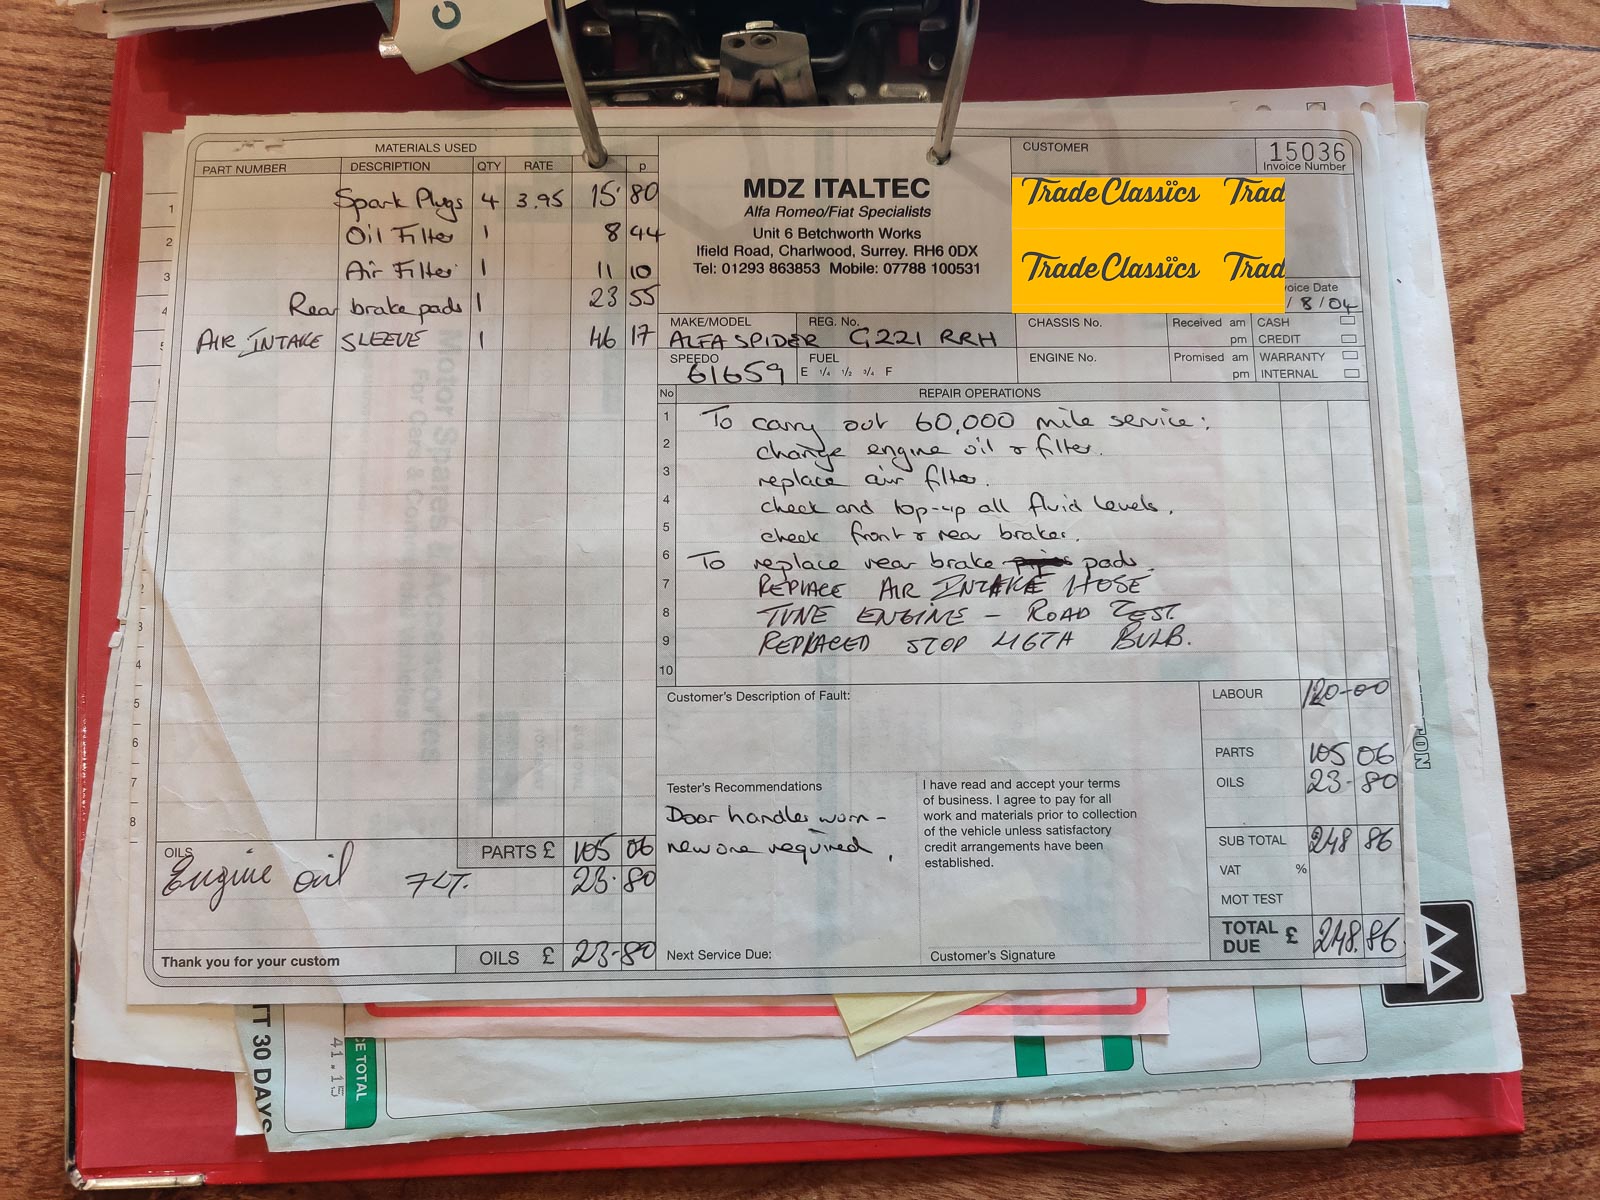 MATERIALS USED
PART NUMBER DESCRIPTION QTY RATE p
1 Spark Plugs 4 3.95 15·80
2 Oil Filter 1 8 94
3 Air Filter 1 11 10
4 Rear brake pads 1 23 55
5 AIR INTAKE SLEEVE 1 46 17
OILS
PARTS £ 105 06
Engine oil 7LT. 23·80
Thank you for your custom
OILS £ 23-80
MDZ ITALTEC
Alfa Romeo/Fiat Specialists
Unit 6 Betchworth Works
Ifield Road, Charlwood, Surrey. RH6 0DX
Tel: 01293 863853 Mobile: 07788 100531
CUSTOMER
15036
Invoice Number
Trade Classics Trad
Trade Classics Trad
voice Date
/8/04
MAKE/MODEL REG. No.
ALFA SPIDER G221 RRH
SPEEDO FUEL
61659 E 1/4 1/2 3/4 F
CHASSIS No. Received am
pm
ENGINE No. Promised am
pm
CASH
CREDIT
WARRANTY
INTERNAL
No REPAIR OPERATIONS
1 To carry out 60,000 mile service:
2 change engine oil & filter.
3 replace air filter.
4 check and top-up all fluid levels.
5 check front & rear brakes.
6 To replace rear brake pads.
7 REPLACE AIR INTAKE HOSE
8 TUNE ENGINE - ROAD TEST.
9 REPLACED STOP LIGTH BULB.
10
Customer's Description of Fault:
Tester's Recommendations
Door handles worn -
new one required.
Next Service Due:
I have read and accept your terms
of business. I agree to pay for all
work and materials prior to collection
of the vehicle unless satisfactory
credit arrangements have been
established.
Customer's Signature
LABOUR 120-00
PARTS 105 06
OILS 23-80
SUB TOTAL 248 86
VAT %
MOT TEST
TOTAL DUE £ 248.86
TT 30 DAYS
41.15
CE TOTAL